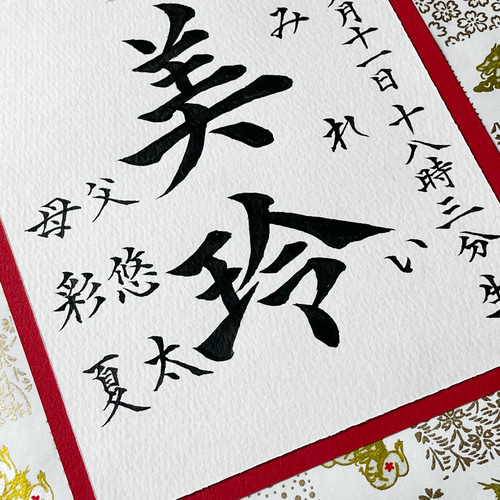 月十一日十八時三分生
みれい
美玲
父 悠太
母 彩夏